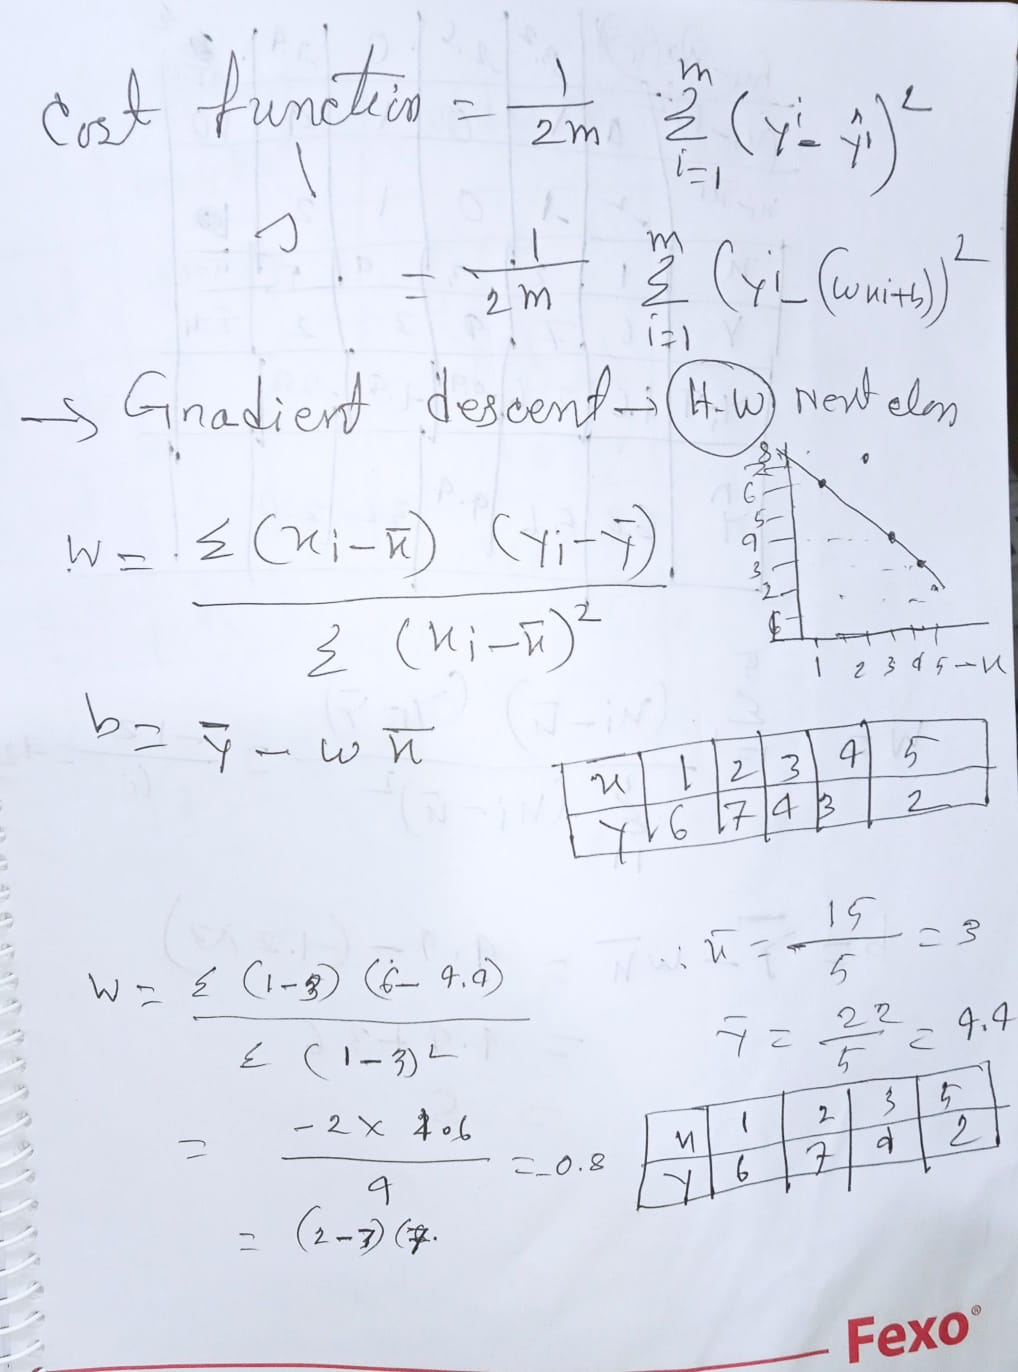 Cost function = 1/2m Σ i=1 m (yi - ŷi)²
J
= 1/2m Σ i=1 m (yi - (wxi+b))²
→ Gradient descent → H.W Next class
8
7
6
5
4
3
2
1
1 2 3 4 5 - x
w = Σ (xi - x̄) (yi - ȳ) / Σ (xi - x̄)²
b = ȳ - w x̄
x 1 2 3 4 5
y 6 7 4 3 2
x̄ = 15/5 = 3
w = Σ (1-3) (6-4.4) / Σ (1-3)²
ȳ = 22/5 = 4.4
= -2 × 1.6 / 4 = -0.8
x 1 2 3 5
y 6 7 4 2
= (2-3) (7.
Fexo®